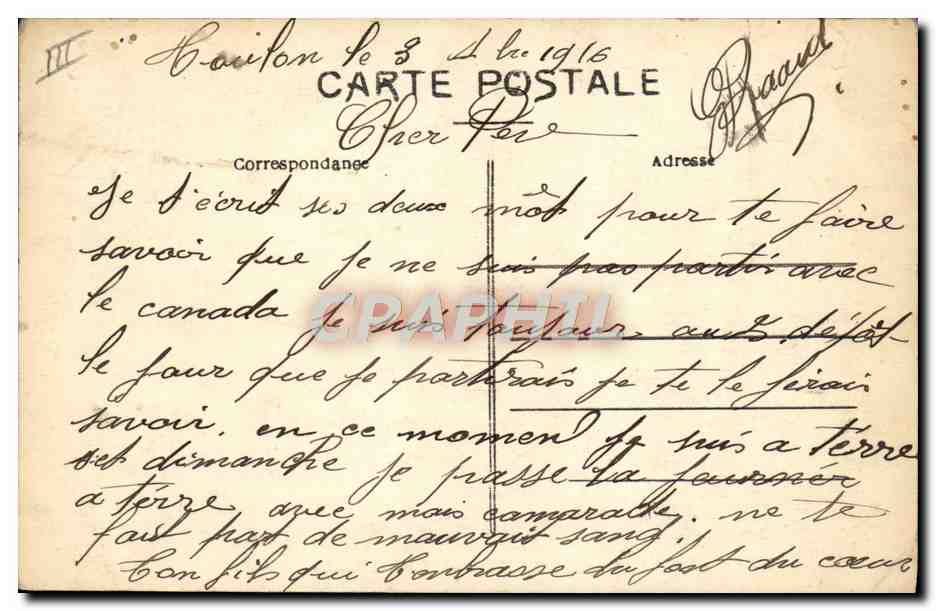 III
Toulon le 3 1916
CARTE POSTALE
Cher Père
Correspondance
Adresse
Je t'écrit ses deux môt pour te faire
savoir que je ne suis pas partis avec
le canada je suis toujour au dépôt
le jour que je partirais je te le ferais
savoir. en ce moment je suis a térre
et dimanche je passe la journée
a térre avec mais camaralde. ne te
fait pas de mauvait sang.
Ton fils qui t'embrasse du fort du cœur
CPAPHIL